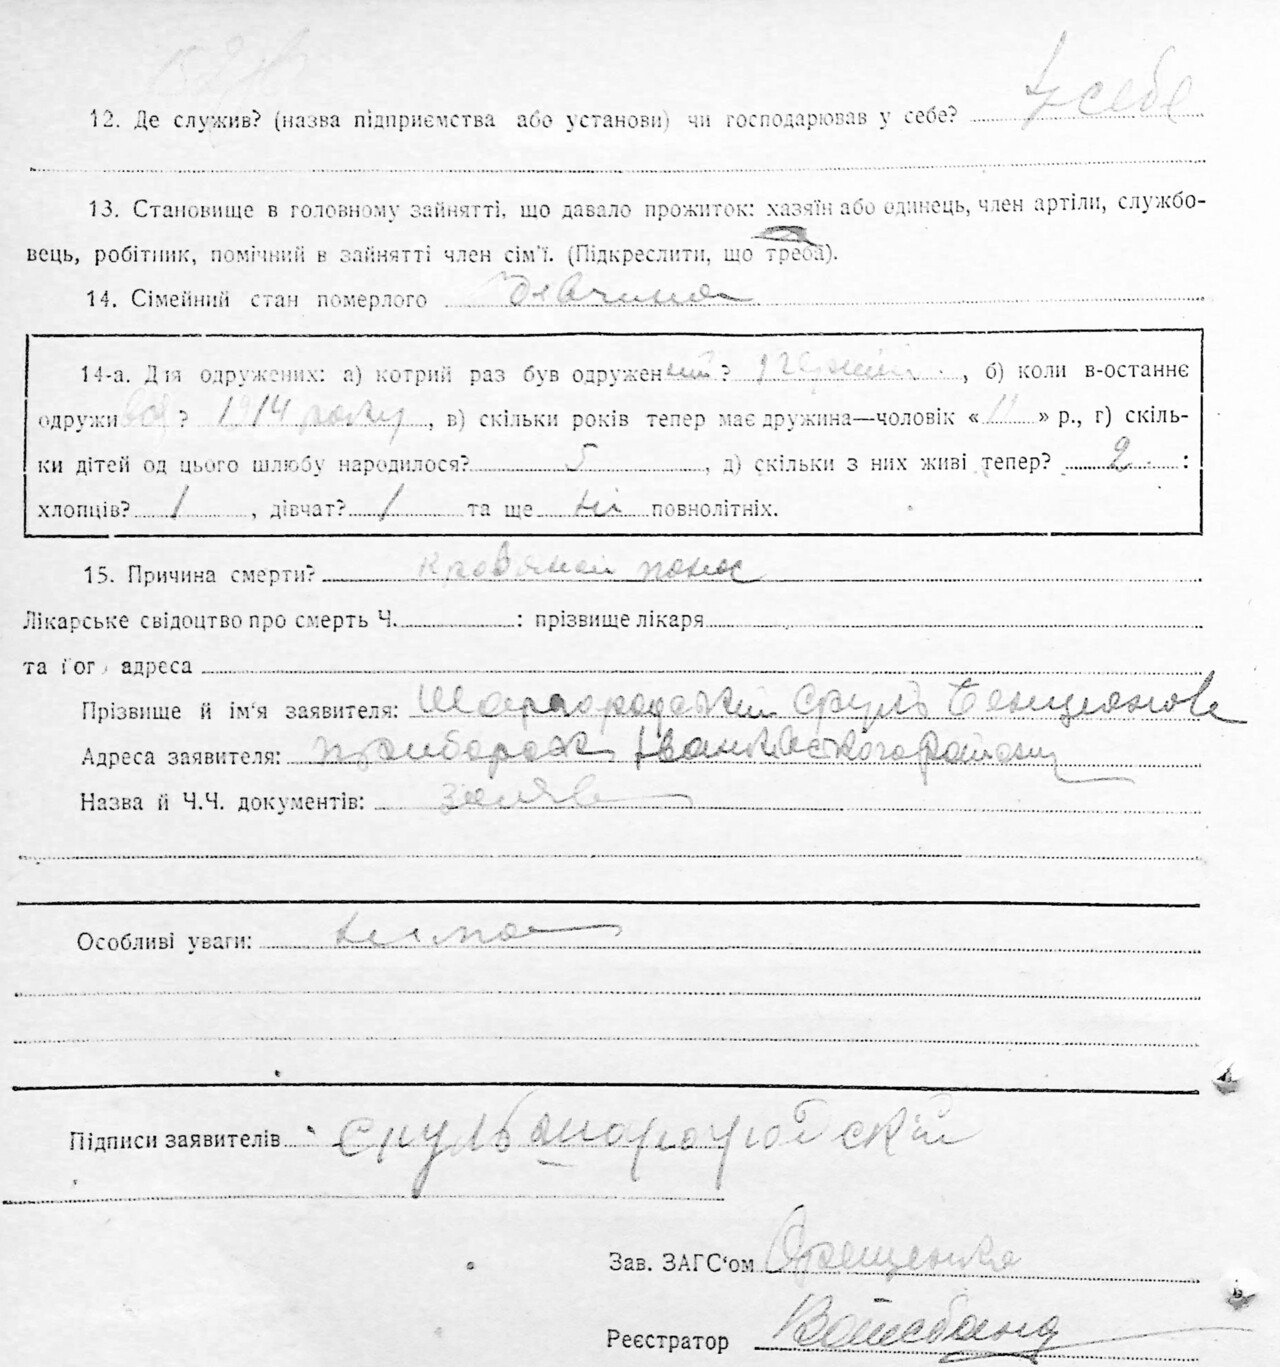 12. Де служив? (назва підприємства або установи) чи господарював у себе? У себе
13. Становище в головному зайнятті, що давало прожиток: хазяїн або одинець, член артіли, службо-
вець, робітник, помічний в зайнятті член сім'ї. (Підкреслити, що треба).
14. Сімейний стан померлого дівчина
14-а. Для одружених: а) котрий раз був одружений? перший, б) коли в-останнє
одружився? 1914 року, в) скільки років тепер має дружина—чоловік « » р., г) скіль-
ки дітей од цього шлюбу народилося? 5, д) скільки з них живі тепер? 2:
хлопців? 1, дівчат? 1 та ще ні повнолітніх.
15. Причина смерти? кровяной понос
Лікарське свідоцтво про смерть Ч. : прізвище лікаря
та його адреса
Прізвище й ім'я заявителя: Шаргородський Сруль Бенционов
Адреса заявителя: Приборск Іванківського району
Назва й Ч.Ч. документів: заява
Особливі уваги: нема
Підписи заявителів Сруль
Зав. ЗАГС'ом
Реєстратор Вайсбанд